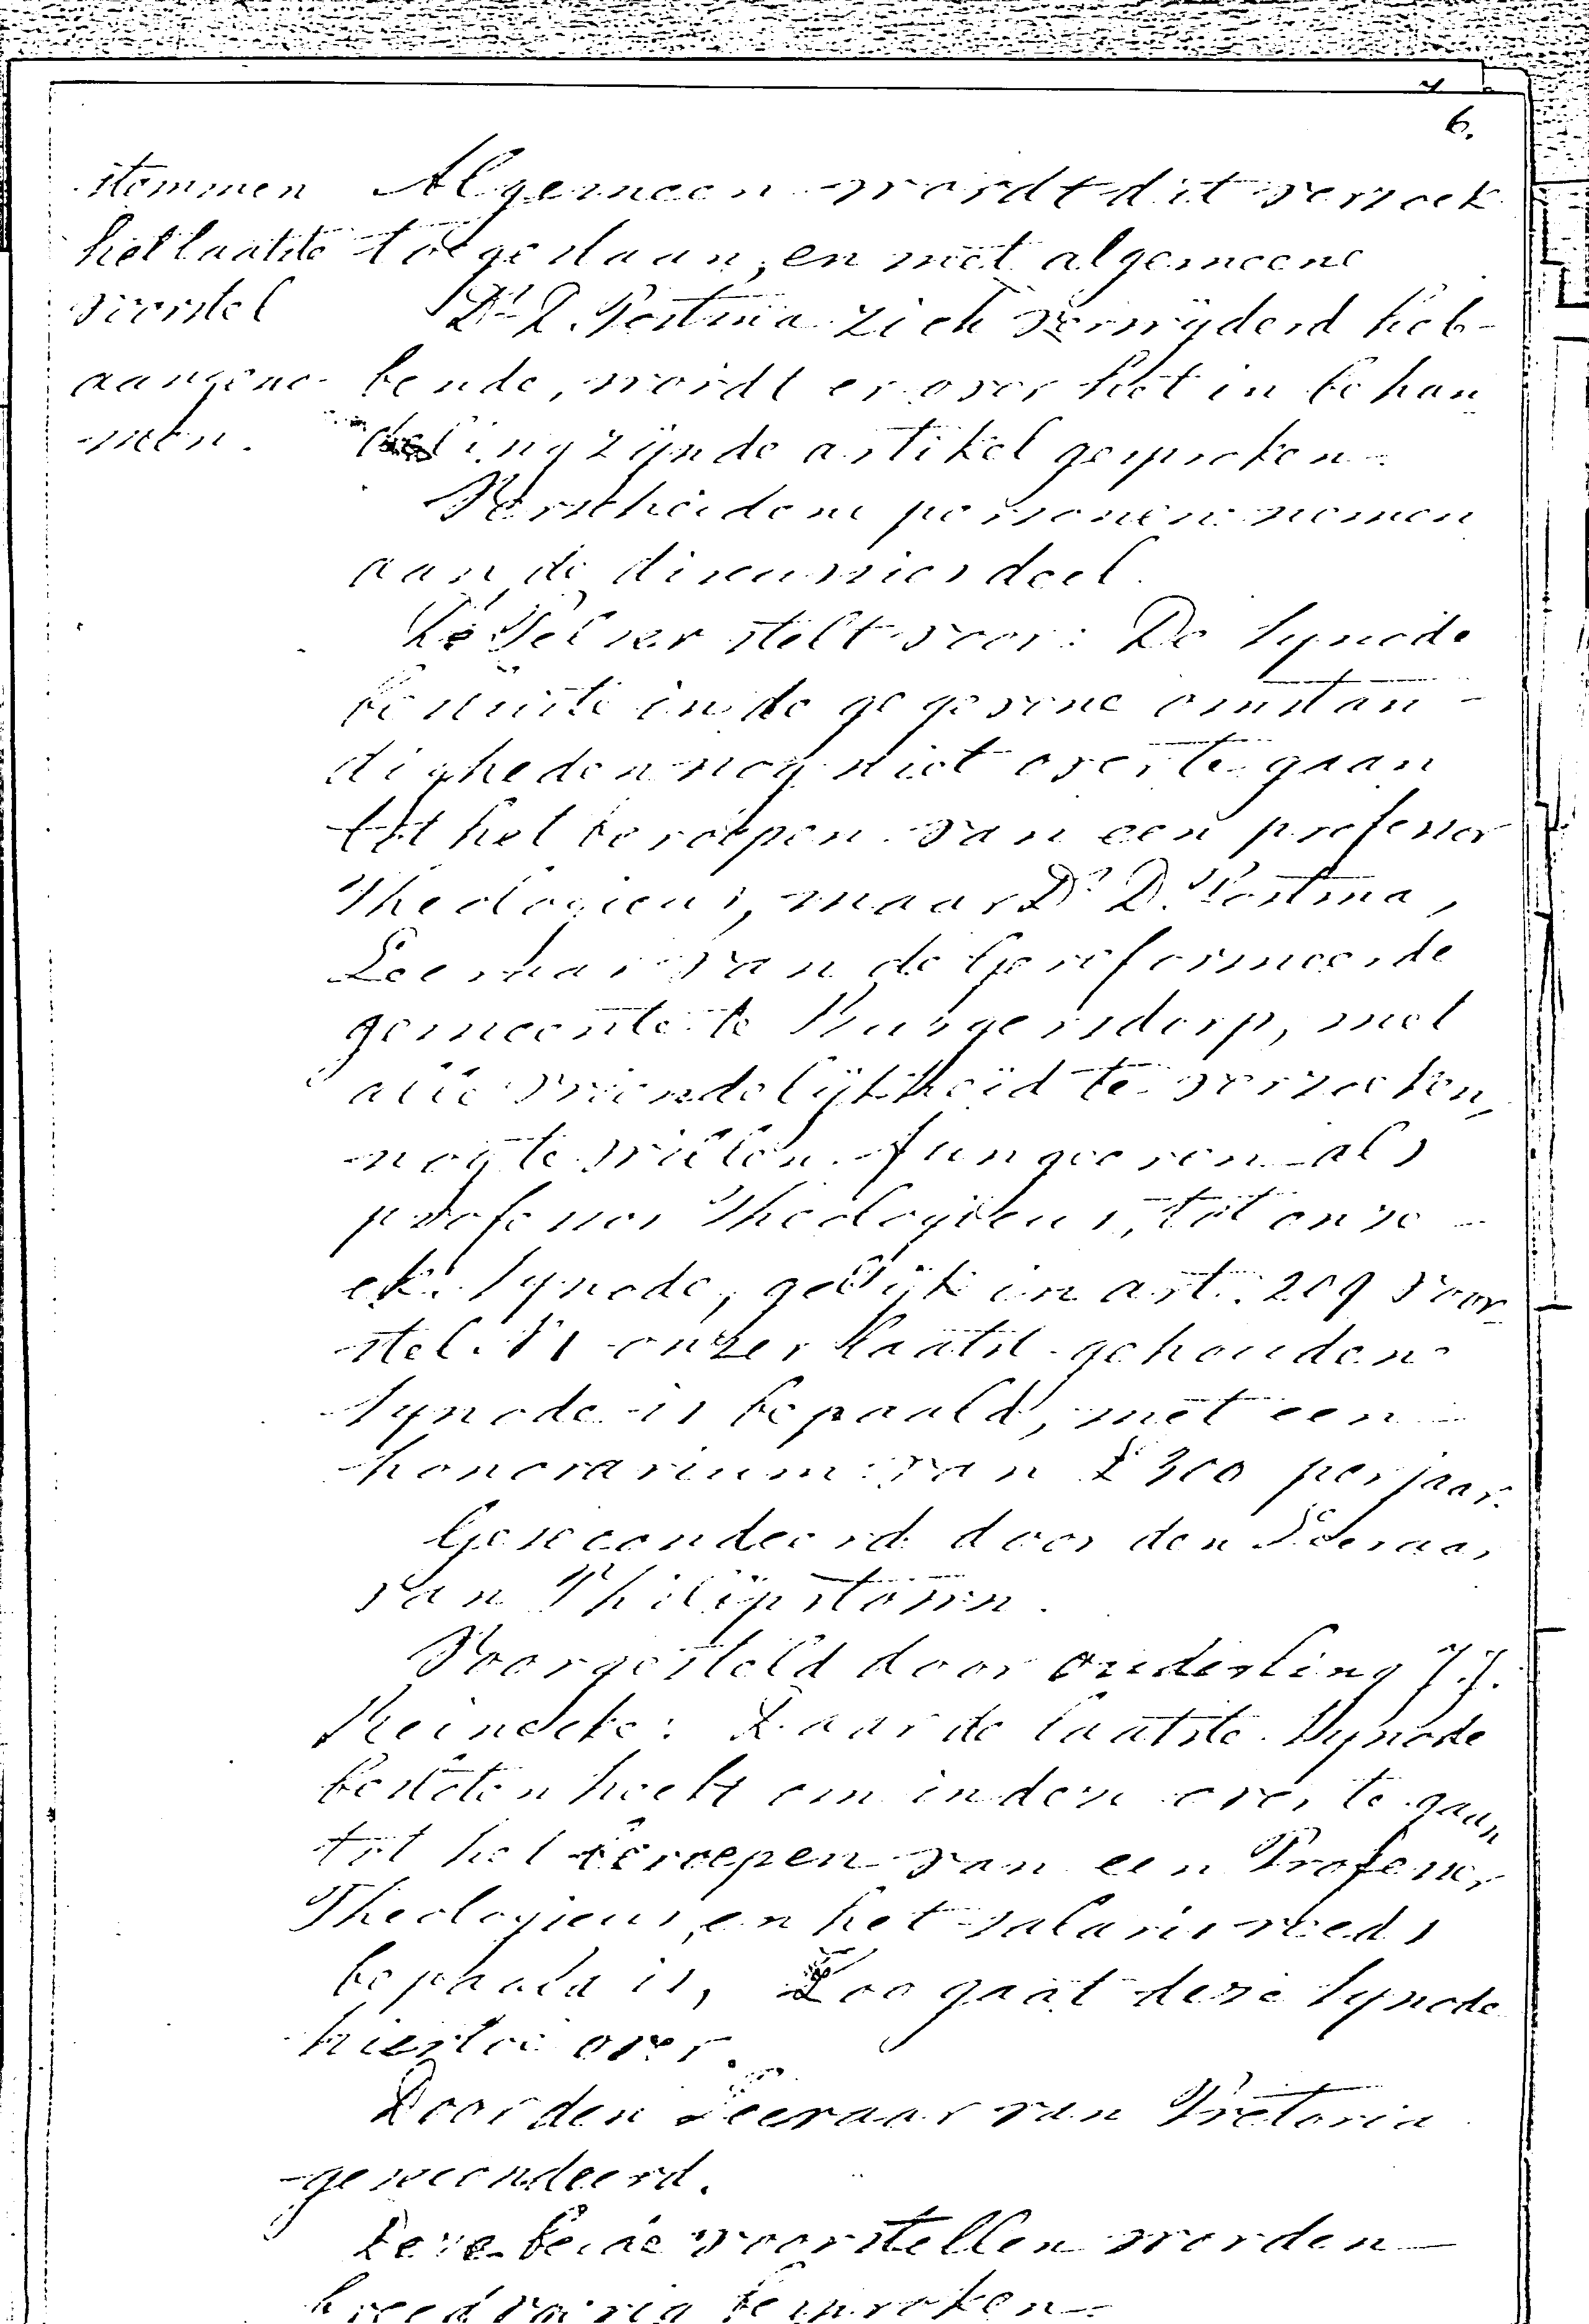 6.
stemmen
het laatste
voorstel
aangeno-
men.
Algemeen wordt dit verzoek
toegestaan, en met algemeene
Ds D. Postma zich verwijderd heb-
bende, wordt er over het in behan
deling zijnde artikel gesproken.
Verscheidene personen nemen
aan de discussies deel.
stelt voor: De Synode
besluite in de gegevene omstan-
digheden nog niet over te gaan
tot het beroepen van een professor
Theologicus, maar Ds D. Postma,
Leeraar van de Gereformeerde
gemeente te Burgersdorp, met
alle vriendelijkheid te verzoeken,
nog te willen fungeeren als
professor Theologicus, tot onze
ek. Synode, gelijk in art. 209 voor-
stel onzer laatst gehouden
Synode is bepaald, met een
honorarium van £300 per jaar.
Gesecondeerd door den Leeraar
van Philipstown.
Voorgesteld door ouderling J.J.
Reinecke: Daar de laatste Synode
besloten heeft om indien over te gaan
tot het beroepen van een Professor
Theologicus, en het salaris reeds
bepaald is, Zoo gaat deze Synode
hiertoe over.
Door den Leeraar van Pretoria
gesecondeerd.
Deze beide voorstellen worden
breedvoerig besproken.